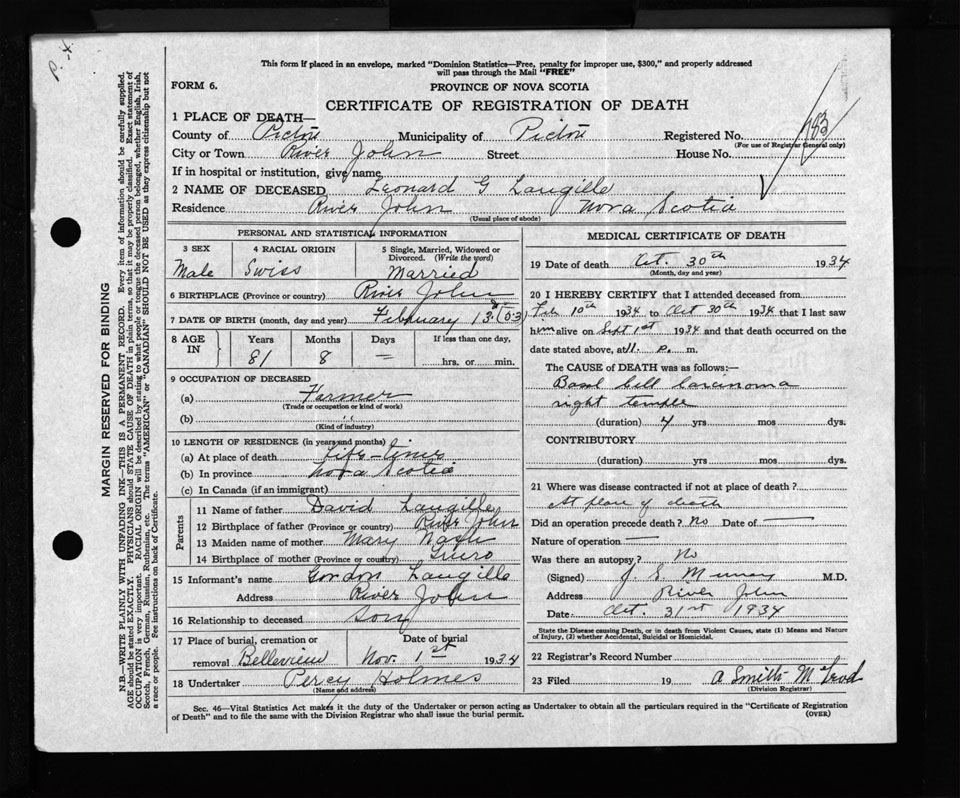 P. X.
This form if placed in an envelope, marked "Dominion Statistics—Free, penalty for improper use, $300," and properly addressed
will pass through the Mail "FREE"
FORM 6.
PROVINCE OF NOVA SCOTIA
CERTIFICATE OF REGISTRATION OF DEATH
1 PLACE OF DEATH—
County of Pictou Municipality of Pictou Registered No.
(For use of Registrar General only)
City or Town River John Street House No.
If in hospital or institution, give name
2 NAME OF DECEASED Leonard G Langille
Residence River John Nova Scotia
(Usual place of abode)
PERSONAL AND STATISTICAL INFORMATION
3 SEX 4 RACIAL ORIGIN 5 Single, Married, Widowed or
Divorced. (Write the word)
Male Swiss Married
6 BIRTHPLACE (Province or country) River John
7 DATE OF BIRTH (month, day and year) February 13
8 AGE IN Years Months Days If less than one day,
81 8 — hrs. or min.
9 OCCUPATION OF DECEASED
(a) Farmer
(Trade or occupation or kind of work)
(b) "
(Kind of industry)
10 LENGTH OF RESIDENCE (in years and months)
(a) At place of death Life-time
(b) In province Nova Scotia
(c) In Canada (if an immigrant)
Parents
11 Name of father David Langille
12 Birthplace of father (Province or country) River John
13 Maiden name of mother Mary Nash
14 Birthplace of mother (Province or country) Truro
15 Informant's name Gordon Langille
Address River John
16 Relationship to deceased son
17 Place of burial, cremation or Date of burial
removal Belleview Nov. 1st 1934
18 Undertaker Percy Holmes
(Name and address)
MEDICAL CERTIFICATE OF DEATH
19 Date of death Oct. 30th 1934
(Month, day and year)
20 I HEREBY CERTIFY that I attended deceased from
Feb 10th 1934 to Oct 30th 1934 that I last saw
him alive on Sept 1st 1934 and that death occurred on
date stated above, at 11. P. m.
The CAUSE OF DEATH was as follows:—
Basal cell carcinoma
right temple
(duration) 4 yrs mos. dys.
CONTRIBUTORY
(duration) yrs mos. dys.
21 Where was disease contracted if not at place of death?
At place of death
Did an operation precede death? No Date of —
Nature of operation —
Was there an autopsy? No
(Signed) J. S. Murray M.D.
Address River John
Date Oct. 31st 1934
State the Disease causing Death, or in death from Violent Causes, state (1) Means and Nature
of Injury, (2) whether Accidental, Suicidal or Homicidal.
22 Registrar's Record Number
23 Filed 19 A Smith
(Division Registrar)
Sec. 46—Vital Statistics Act makes it the duty of the Undertaker or person acting as Undertaker to obtain all the particulars required in the "Certificate of Registration
of Death" and to file the same with the Division Registrar who shall issue the burial permit. (OVER)
MARGIN RESERVED FOR BINDING
N.B.—WRITE PLAINLY WITH UNFADING INK—THIS IS A PERMANENT RECORD. Every item of information should be carefully supplied.
AGE should be stated EXACTLY. PHYSICIANS should STATE CAUSE OF DEATH in plain terms, so that it may be properly classified. Exact statement of
OCCUPATION is very important. RACIAL ORIGIN will be described by stating to what people or tongue the deceased person belonged, whether English, Irish,
Scotch, French, German, Russian, Ruthenian, etc. The terms "AMERICAN" or "CANADIAN" SHOULD NOT BE USED as they express citizenship but not
a race or people. See instructions on back of Certificate.